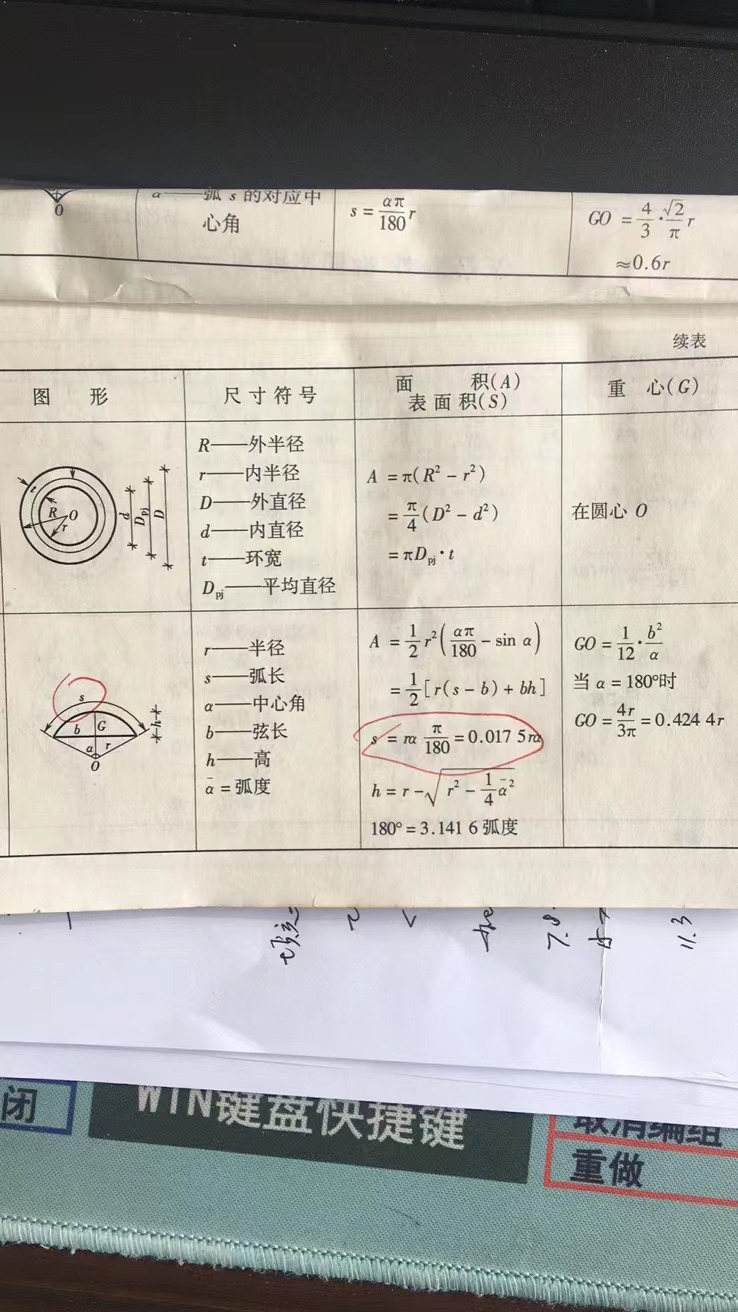 α——弧 s 的对应中
心角
s = απ/180 r
GO = 4/3 · √2/π r
≈0.6r
O
续表
图 形
尺寸符号
面 积(A)
表面积(S)
重 心(G)
t
R
O
r
d
D_pj
D
R——外半径
r——内半径
D——外直径
d——内直径
t——环宽
D_pj——平均直径
A = π(R² − r²)
= π/4 (D² − d²)
= πD_pj · t
在圆心 O
s
b
G
h
α
r
O
r——半径
s——弧长
α——中心角
b——弦长
h——高
ᾱ = 弧度
A = 1/2 r² (απ/180 − sin α)
= 1/2 [r(s − b) + bh]
s = rα π/180 = 0.017 5rα
h = r − √(r² − 1/4 ᾱ²)
180° = 3.141 6 弧度
GO = 1/12 · b²/α
当 α = 180°时
GO = 4r/3π = 0.424 4r
7.8
11.3
闭
WIN键盘快捷键
取消编组
重做